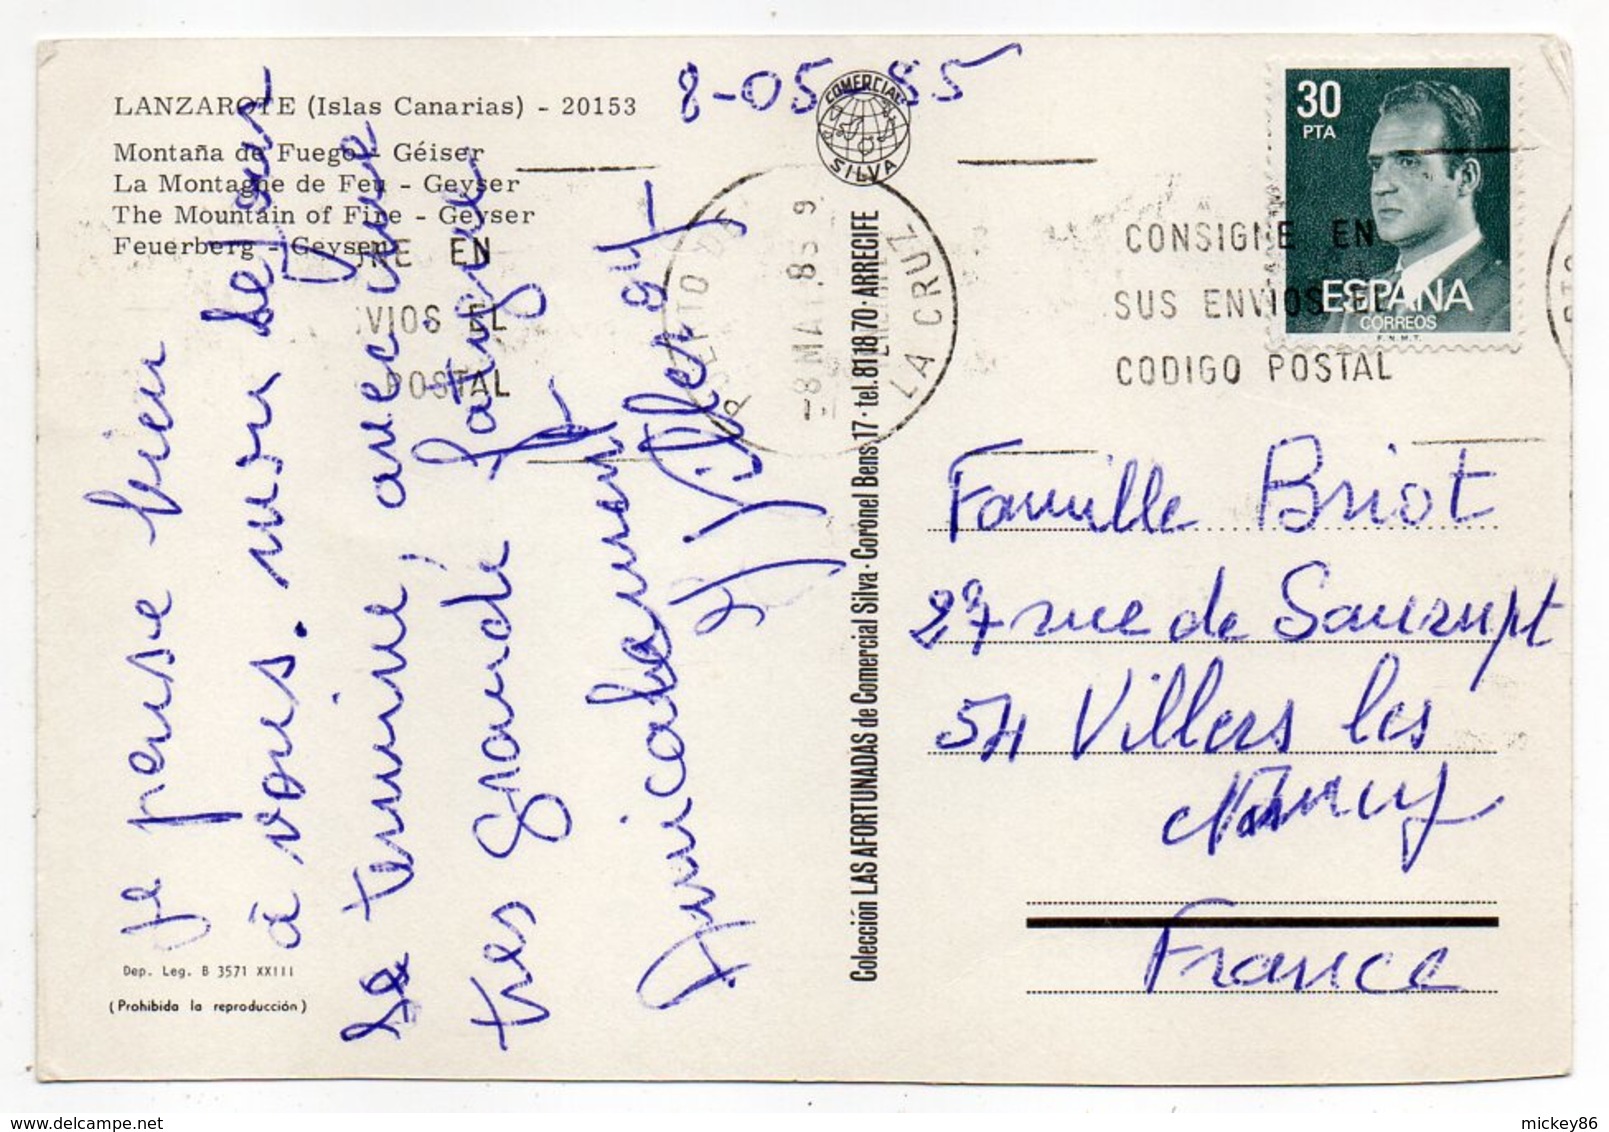 8-05-85
LANZAROTE (Islas Canarias) - 20153
Montaña de Fuego - Géiser
La Montagne de Feu - Geyser
The Mountain of Fire - Geyser
Feuerberg - Geysen
COMERCIAL
SILVA
30
PTA
ESPAÑA
CORREOS
F.N.M.T.
CONSIGNE EN
SUS ENVIOS EL
CODIGO POSTAL
PUERTO
LA CRUZ
-8 MAY.85
Je pense bien
à vous. mon séjour
se termine, avec une
très grande fatigue
Amicalement
Colección LAS AFORTUNADAS de Comercial Silva · Coronel Bens 17 · tel. 81 18 70 · ARRECIFE
Famille Briot
27 rue de Saurupt
54 Villers les
Nancy
France
Dep. Leg. B 3571 XXIII
(Prohibida la reproducción)
mickey86